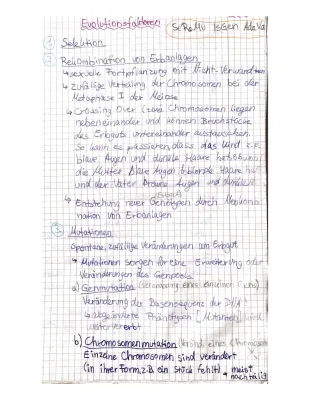 Evolutionsfaktoren
SeReMu IsGen AdeVa
① Selektion
② Rekombination von Erbanlagen
↳ sexuelle Fortpflanzung mit Nicht-Verwandten
↳ zufällige Verteilung der Chromosomen bei der
Metaphase I der Meiose
↳ Crossing Over (zwei Chromosomen liegen
nebeneinander und können Bruchstücke
des Erbguts untereinander austauschen.
So kann es passieren dass das Kind z.B.
blaue Augen und dunkle Haare hat, obwohl
die Mutter blaue Augen & blonde Haare
und der Vater braune Augen und dunkle
↳ Entstehung neuer Genotypen durch
nation von Erbanlagen
③ Mutationen
spontane, zufällige Veränderungen am Erbgut
↳ Mutationen sorgen für eine Erweiterung oder
Veränderungen des Genpools.
a) Genmutation (Veränderung eines einzelnen Gens)
Veränderung der Basensequenz der DNA
↳ abgeänderte Phänotypen [Mutanten] wird
weitervererbt
b) Chromosomenmutation eines Chromosom
Einzelne Chromosomen sind verändert
(in ihrer Form, z.B. ein Stück fehlt) → meist
nachteilig